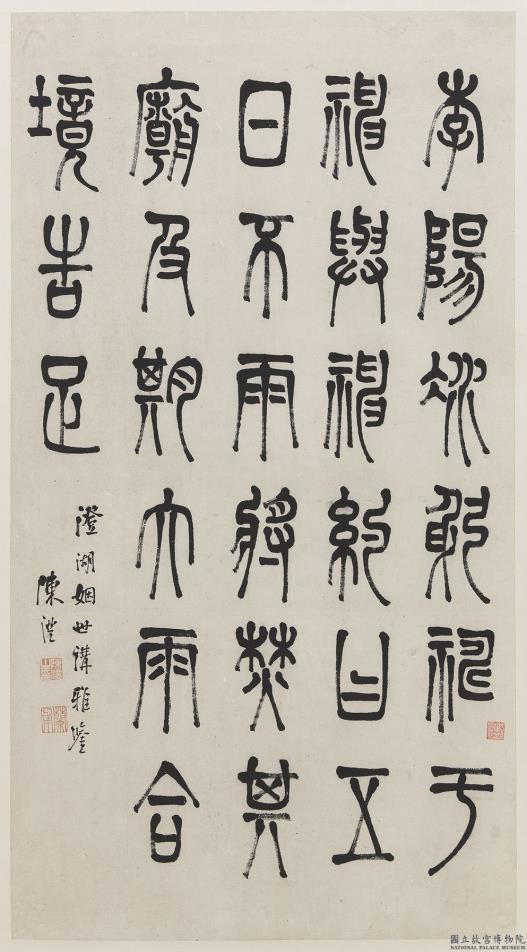 李陽冰躬祈于
神與神約曰五
日不雨將焚其
廟及期大雨合
境告足
澄湖姻世講雅鑒
陳澧
國立故宮博物院
NATIONAL PALACE MUSEUM